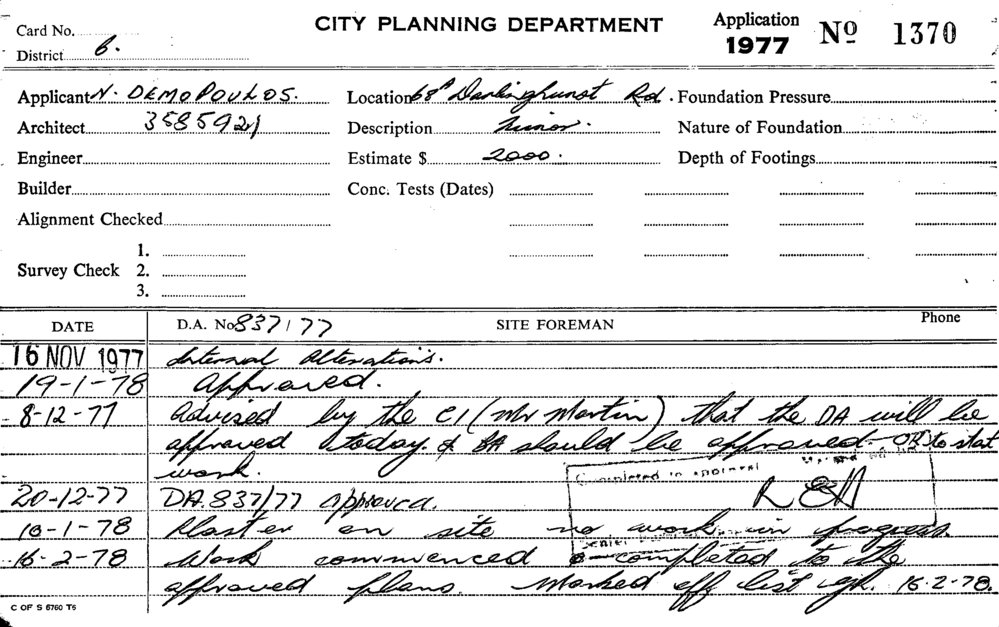 Card No.
CITY PLANNING DEPARTMENT
Application 1977 Nº 1370
District 6.
Applicant N. DEMOPOULOS. Location 68A Darlinghurst Rd. Foundation Pressure
Architect 3585921 Description Minor. Nature of Foundation
Engineer Estimate $ 2000. Depth of Footings
Builder Conc. Tests (Dates)
Alignment Checked
1.
Survey Check 2.
3.
DATE D.A. No 837/77 SITE FOREMAN Phone
16 NOV 1977 Internal Alterations.
19-1-78 Approved.
8-12-77 Advised by the CI (Mr Martin) that the DA will be
approved today. & BA should be approved. OK to stat
work.
Completed in approval
20-12-77 DA.837/77 approved.
18-1-78 Plaster on site no work in progress.
16-2-78 Work commenced & completed to the
approved plans. Marked off list 16-2-78.
C OF S 6760 T6